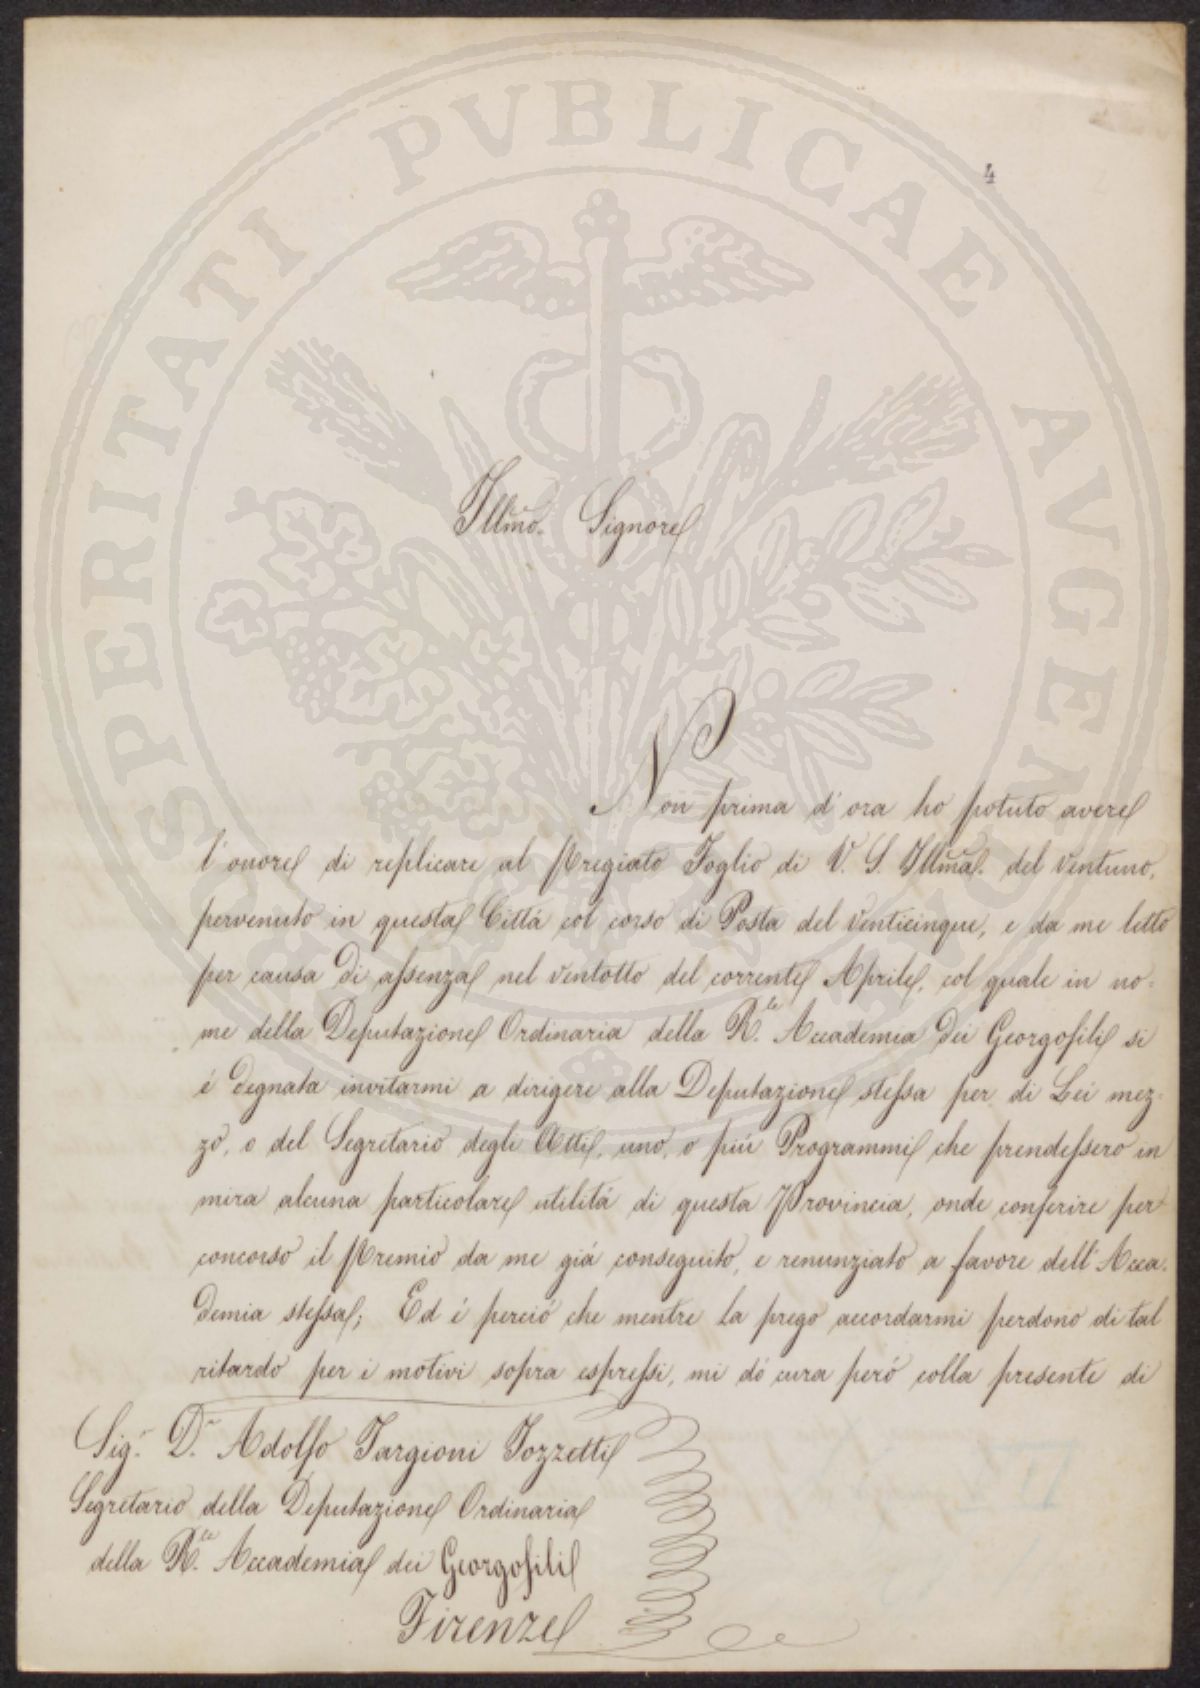 PROSPERITATI PVBLICAE AVGENDAE
4
Illmo. Signore
Non prima d'ora ho potuto avere
l'onore di replicare al Pregiato Foglio di V. S. Illma. del ventuno,
pervenuto in questa Cittá col corso di Posta del venticinque, e da me letto
per causa di assenza nel ventotto del corrente Aprile, col quale in no=
me della Deputazione Ordinaria della R.le Accademia dei Georgofili si
é degnata invitarmi a dirigere alla Deputazione stessa per di Lei mez=
zo, o del Segretario degli Atti, uno, o piú Programmi che prendessero in
mira alcuna particolare utilitá di questa Provincia, onde conferire per
concorso il Premio da me giá conseguito, e renunziato a favore dell'Acca=
demia stessa; Ed é perció che mentre la prego accordarmi perdono di tal
ritardo per i motivi sopra espressi, mi dó cura peró colla presente di
Sig.r D.r Adolfo Targioni Tozzetti
Segretario della Deputazione Ordinaria
della R.le Accademia dei Georgofili
Firenze